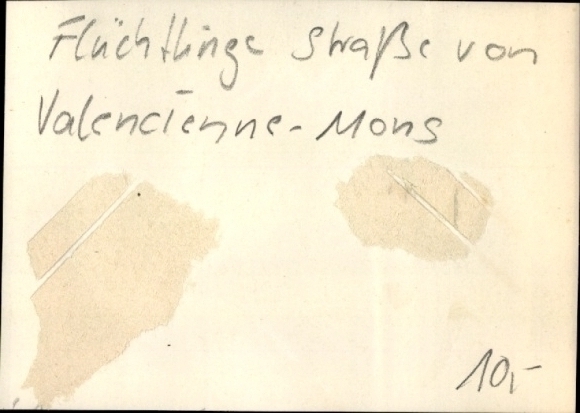 Flüchtlinge Straße von
Valencienne-Mons
10,-